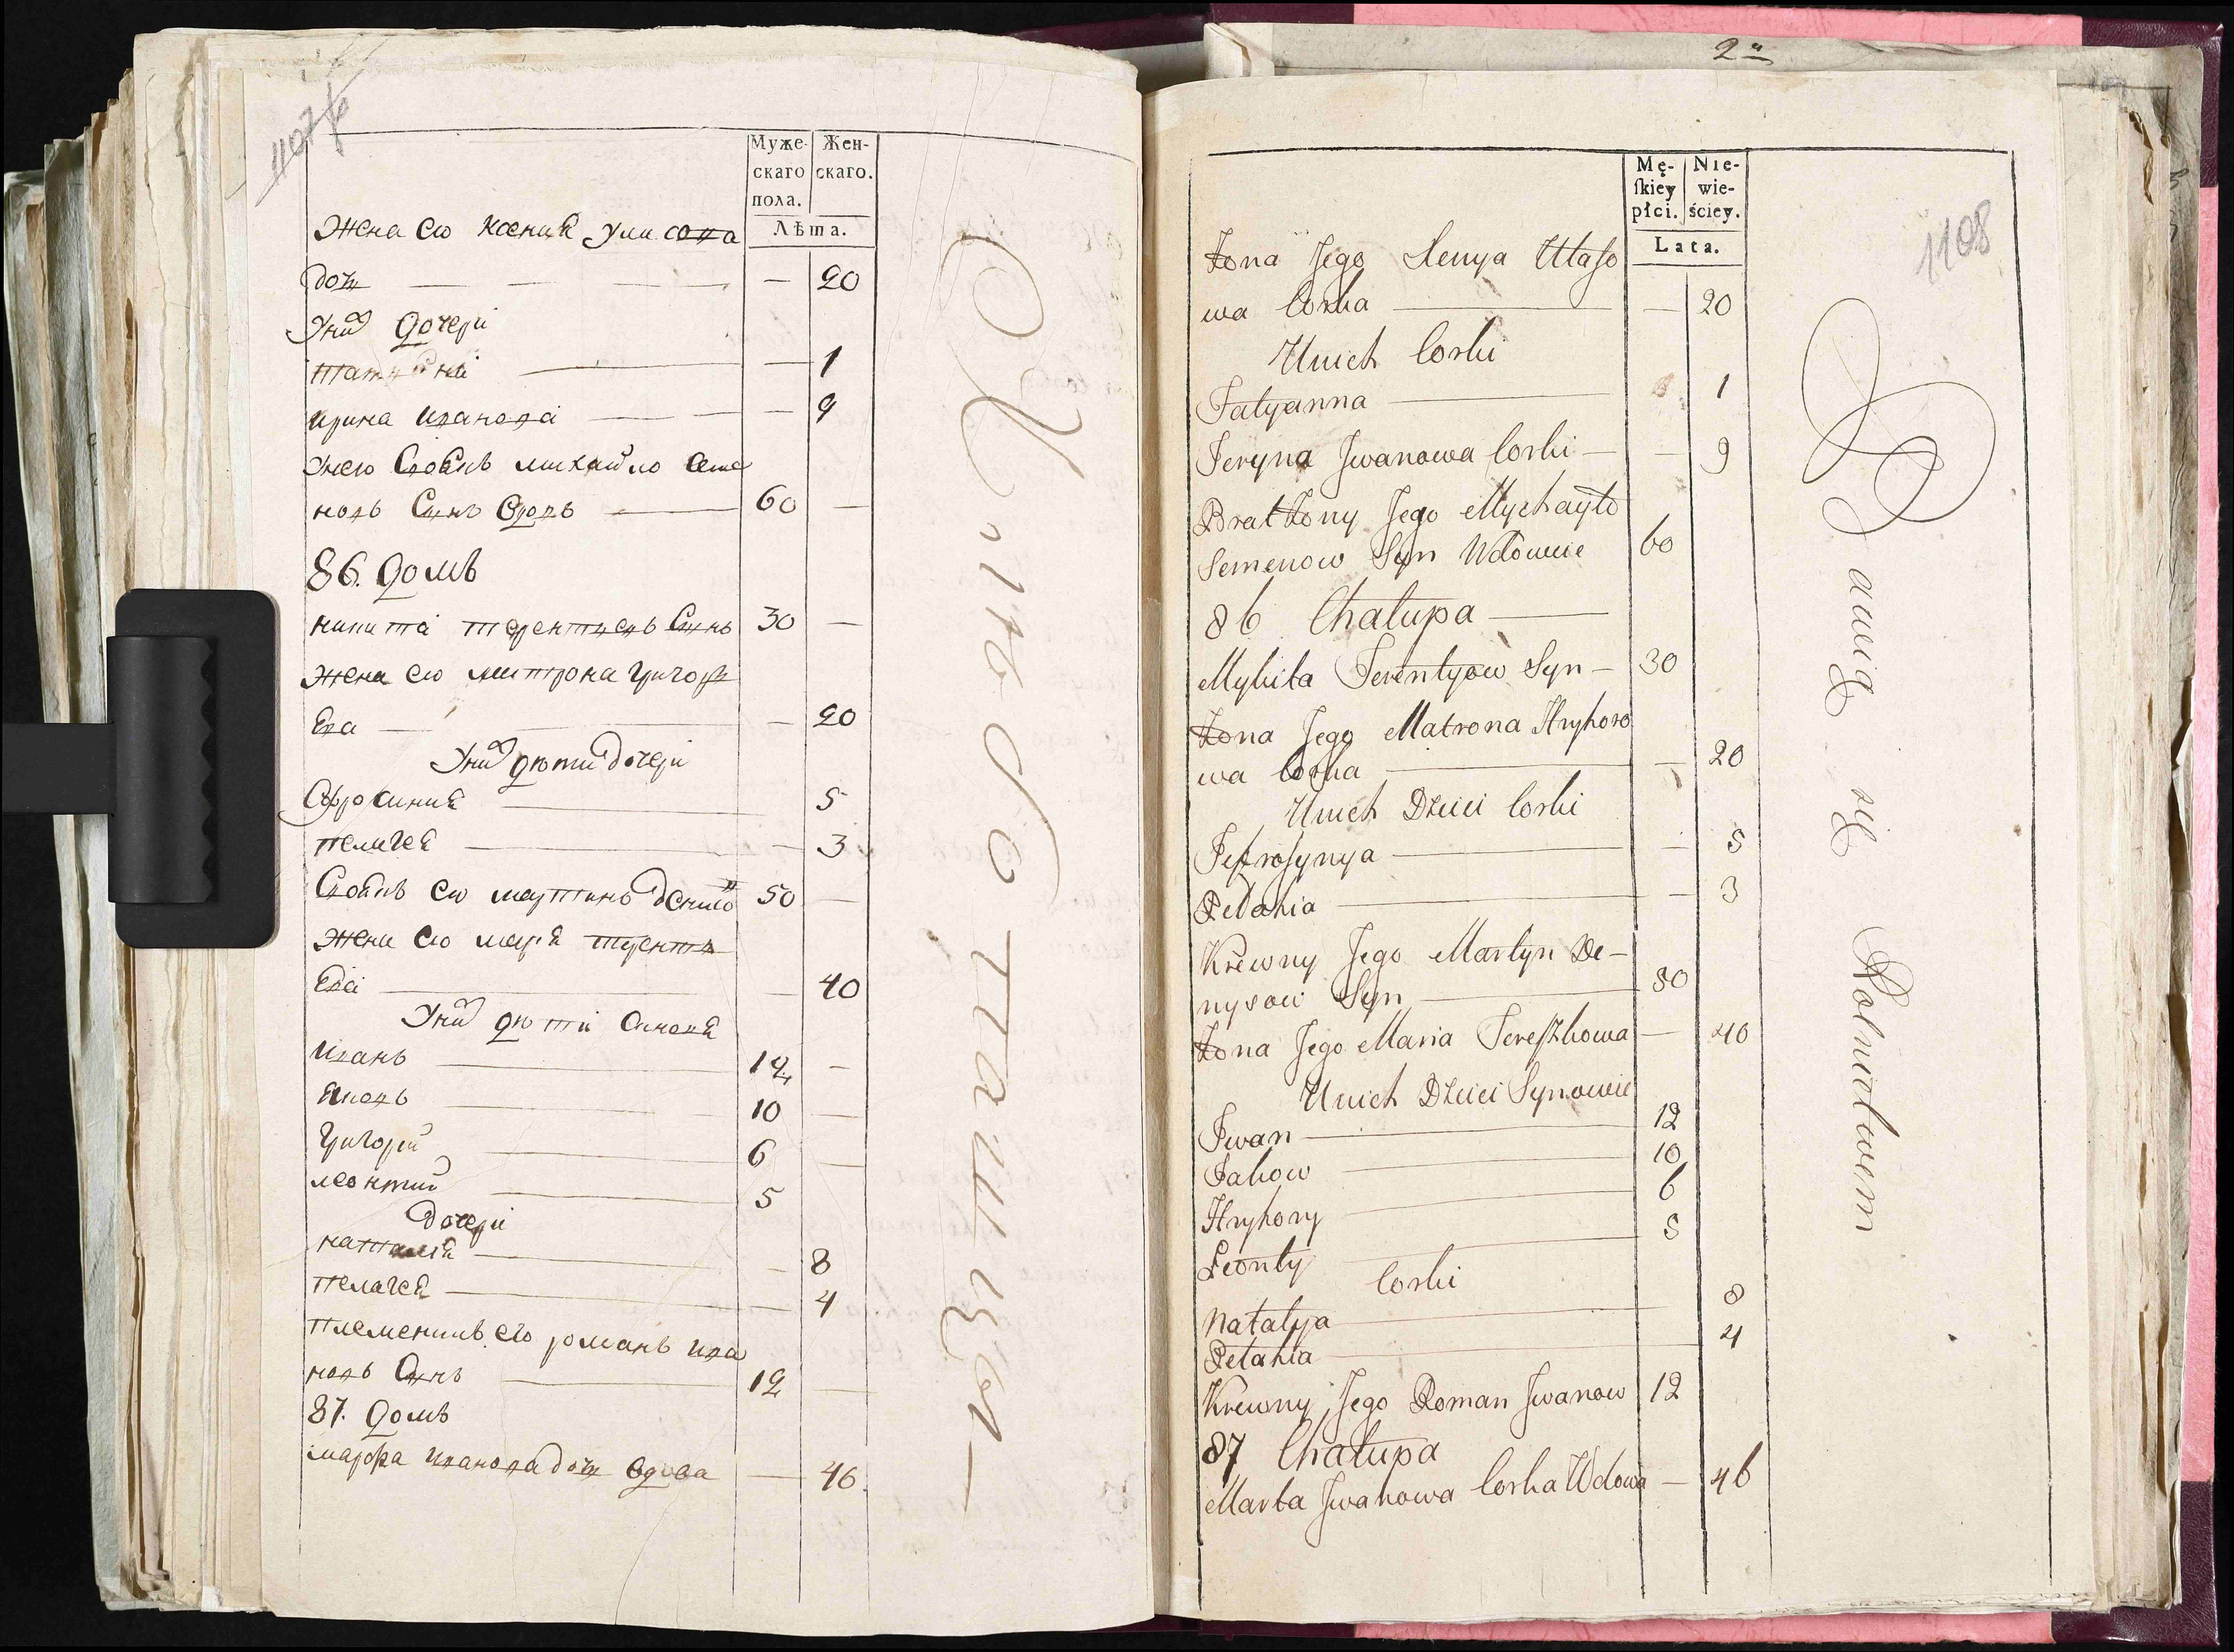 1107/
Муже-
скаго
пола.
Жен-
скаго.
Лѣта.
Жена его Ксения Улисова
доч — 20
У них дочери
татияна — 1
ирина иванова — 9
У него своякъ михайло Семе
новъ Синъ вдовъ 60 —
86. домъ
никита терентиевъ Синъ 30 —
Жена его митрона григори
Ева — 20
У них дѣти дочери
Ефросиния 5
пелагея — 3
Своякъ его мартинъ денисо 50 —
Жена его мария терентя
Ева — 40
У них дѣти Синовя
иванъ 12 —
яковъ 10 —
григорий 6 —
леонтий 5
дочери
наталия — 8
пелагея — 4
племеникъ его романъ ива
новъ Синъ 12 —
87. домъ
марфа иванова доч вдова — 46
2"
1108
Mę-
ſkiey
płci.
Nie-
wie-
ściey.
Lata.
Żona Jego Xenya Ulaſo
wa Corka — 20
U nich Corki
Tatyanna 1
Jeryna Jwanowa Corki — 9
Brat Żony Jego Mychayło
Semenow Syn Wdowiec 60
86 Chałupa
Mykita Terentyow Syn 30
Żona Jego Matrona Hryhoro
wa Corka — 20
U nich Dzieci Corki
Jefroſynya — 5
Pelahia — 3
Krewny Jego Martyn De-
nysow Syn 50
Żona Jego Maria Tereſzkowa — 40
U nich Dzieci Synowie
Jwan 12
Jakow 10
Hryhory 6
Leonty 5
Corki
Natalya 8
Pelahia 4
Krewny Jego Roman Jwanow 12
87 Chałupa
Marta Jwanowa Corka Wdowa — 46